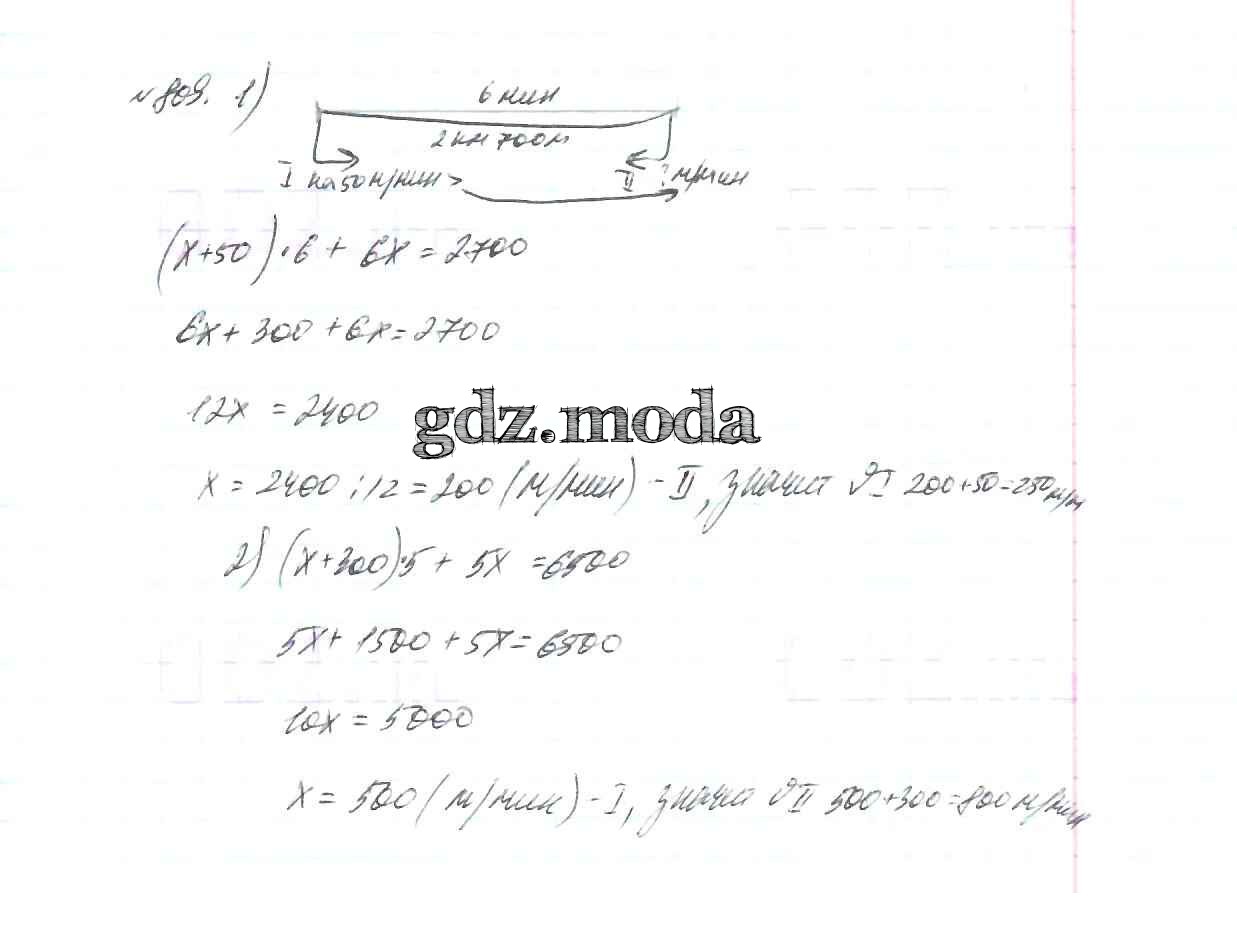 №809. 1) 6 мин
2 км 700 м
I на 50 м/мин > II ? м/мин
(x+50)·6 + 6x = 2700
6x + 300 + 6x = 2700
12x = 2400
gdz.moda
x = 2400 : 12 = 200 (м/мин) - II, значит ϑI 200+50=250 м/м
2) (x+300)·5 + 5x = 6500
5x + 1500 + 5x = 6500
10x = 5000
x = 500 (м/мин) - I, значит ϑII 500+300=800 м/мин